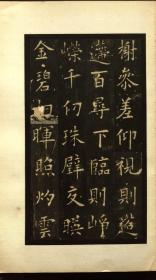 榭參差仰視則迢
遰百尋下臨則崢
嶸千仞珠壁交暎
金碧相暉照灼雲